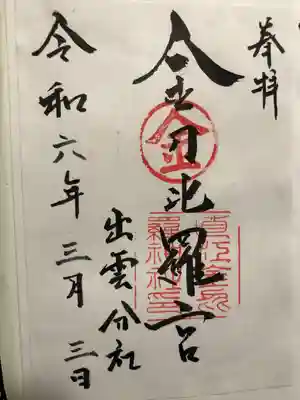 奉拝
金刀比羅宮
金
出雲分社
令和六年三月三日